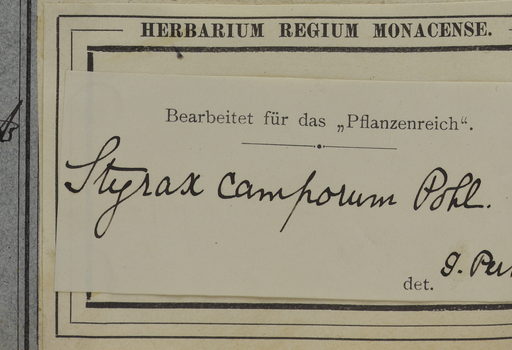 HERBARIUM REGIUM MONACENSE.
Bearbeitet für das „Pflanzenreich“.
Styrax camporum Pohl.
det.